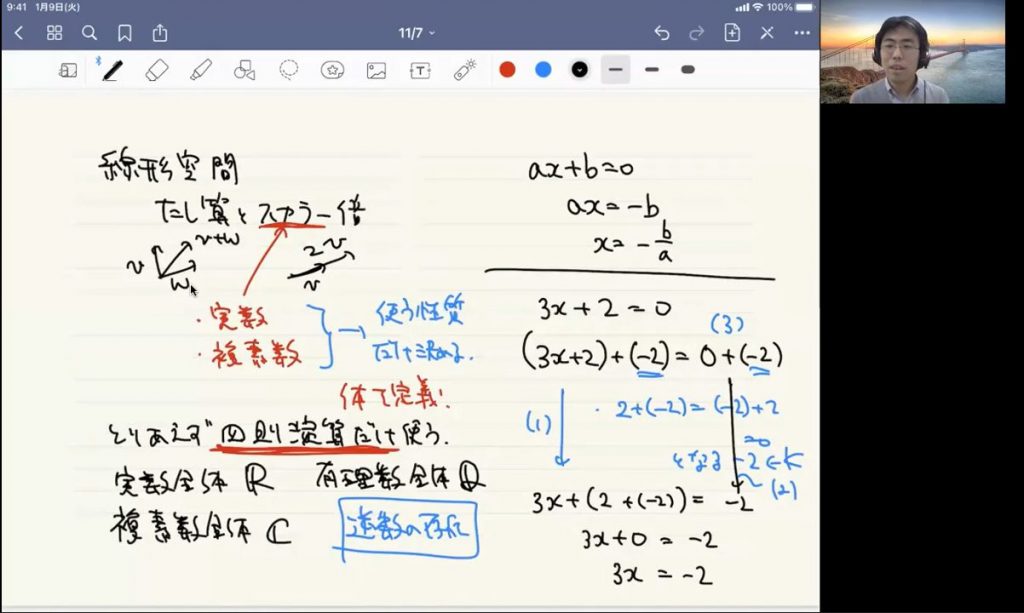 9:41 1月9日(火)
100%
11/7
T
線形空間
たし算とスカラー倍
v
v+w
w
2v
v
・実数
・複素数
使う性質
だけ決める.
体で定義!
とりあえず四則演算だけ使う.
実数全体 ℝ 有理数全体 ℚ
複素数全体 ℂ
逆数の存在
ax+b=0
ax=-b
x=-b/a
3x+2=0
(3)
(3x+2)+(-2)=0+(-2)
(1)
・2+(-2)=(-2)+2
=0
となる -2 ∈ K
(2)
3x+(2+(-2))= -2
3x+0 = -2
3x = -2